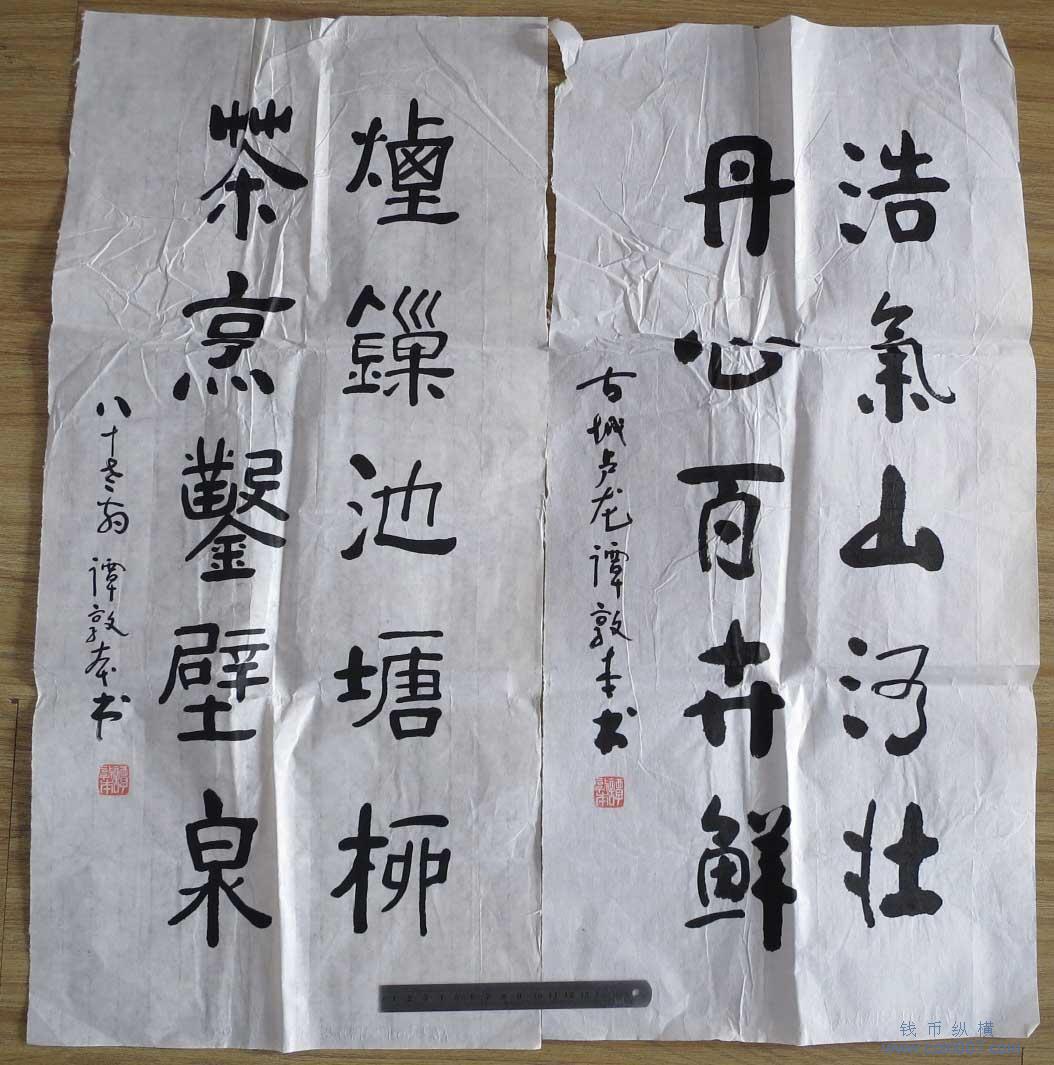 浩氣山河壮
丹心百卉鮮
古城卢龙谭敦本书
譚敦本
煙鏁池塘柳
茶烹鑿壁泉
八十老翁 谭敦本书
譚敦本
钱币纵横
www.coin007.com